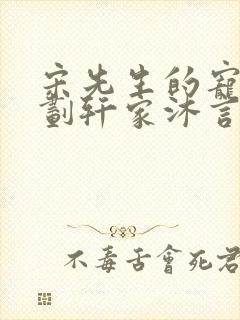 宋先生的寵
劃轩家沐言
不毒舌會死君